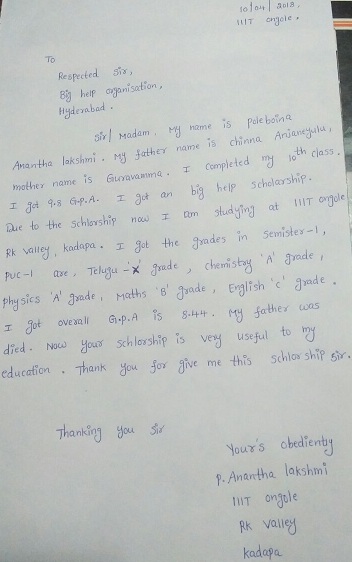 10/04/2018,
IIIT ongole.
To
Respected sir,
Big help organisation,
Hyderabad.
Sir/ Madam. My name is poleboina
Anantha lakshmi. My father name is chinna Anjaneyulu,
mother name is Guravamma. I completed my 10th class.
I got 9.8 G.P.A. I got an big help scholarship.
Due to the schlorship now I am studying at IIIT ongole
Rk valley, kadapa. I got the grades in semister-1,
PUC-1 are, Telugu-'x' grade, chemistry 'A' grade,
physics 'A' grade, Maths 'B' grade, English 'c' grade.
I got overall G.P.A is 8.44. My father was
died. Now your schlorship is very useful to my
education. Thank you for give me this schlorship sir.
Thanking you sir
Your's obediently
p. Anantha lakshmi
IIIT ongole
Rk valley
kadapa